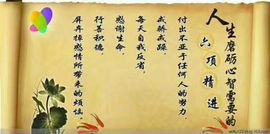 人生磨砺心智需要的
六项精进
付出不亚于任何人的努力、
戒骄戒躁、
每天自我反省、
感谢生命、
行善积德、
屏弃掉感情所带来的烦恼。